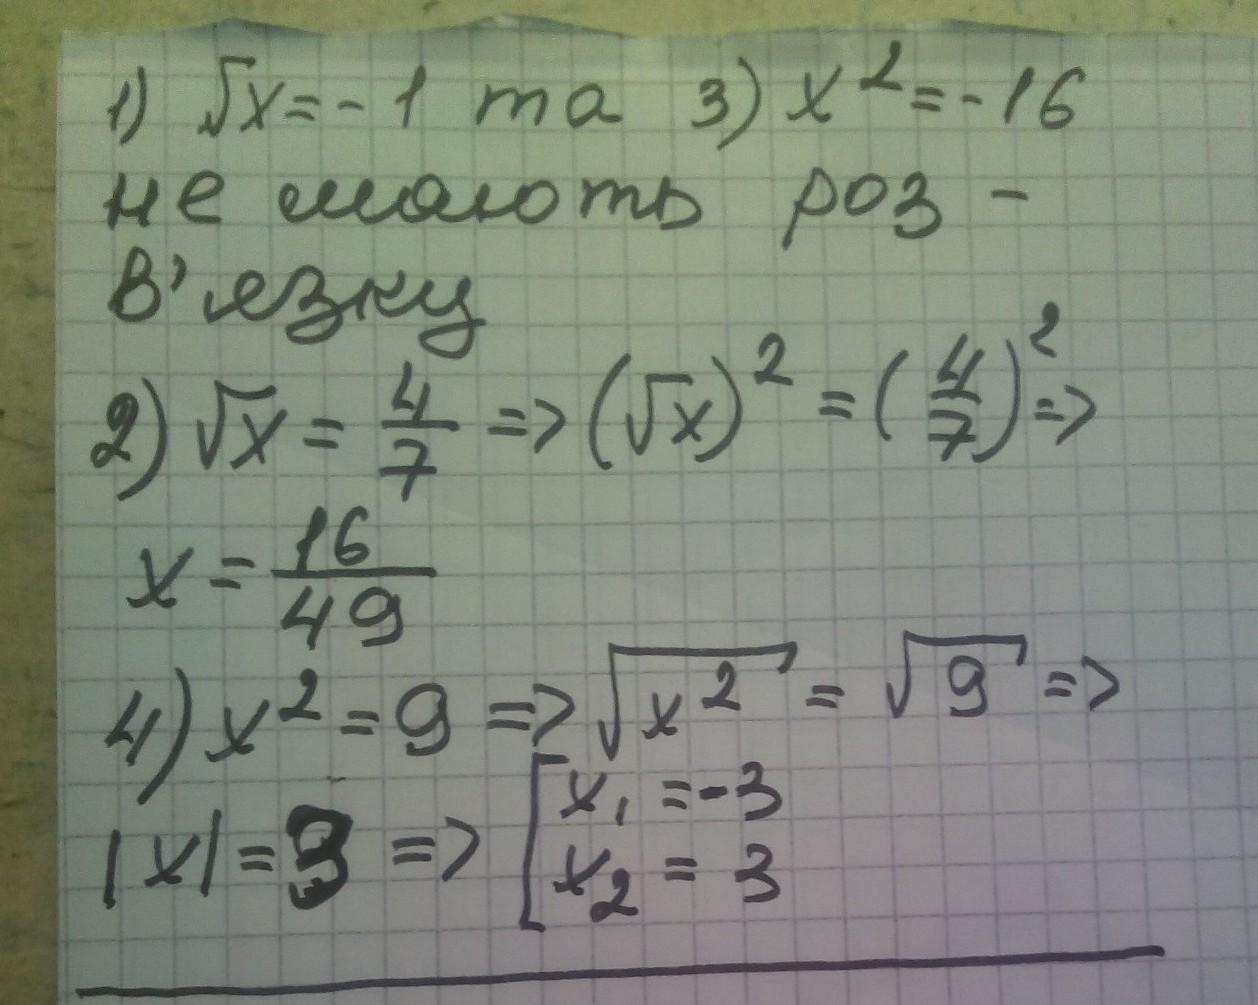 1) √x = - 1 та 3) x² = - 16
не мають роз -
в'язку
2) √x = 4/7 => (√x)² = (4/7)² =>
x = 16/49
4) x² = 9 => √x² = √9 =>
|x| = 3 => [ x₁ = -3
x₂ = 3